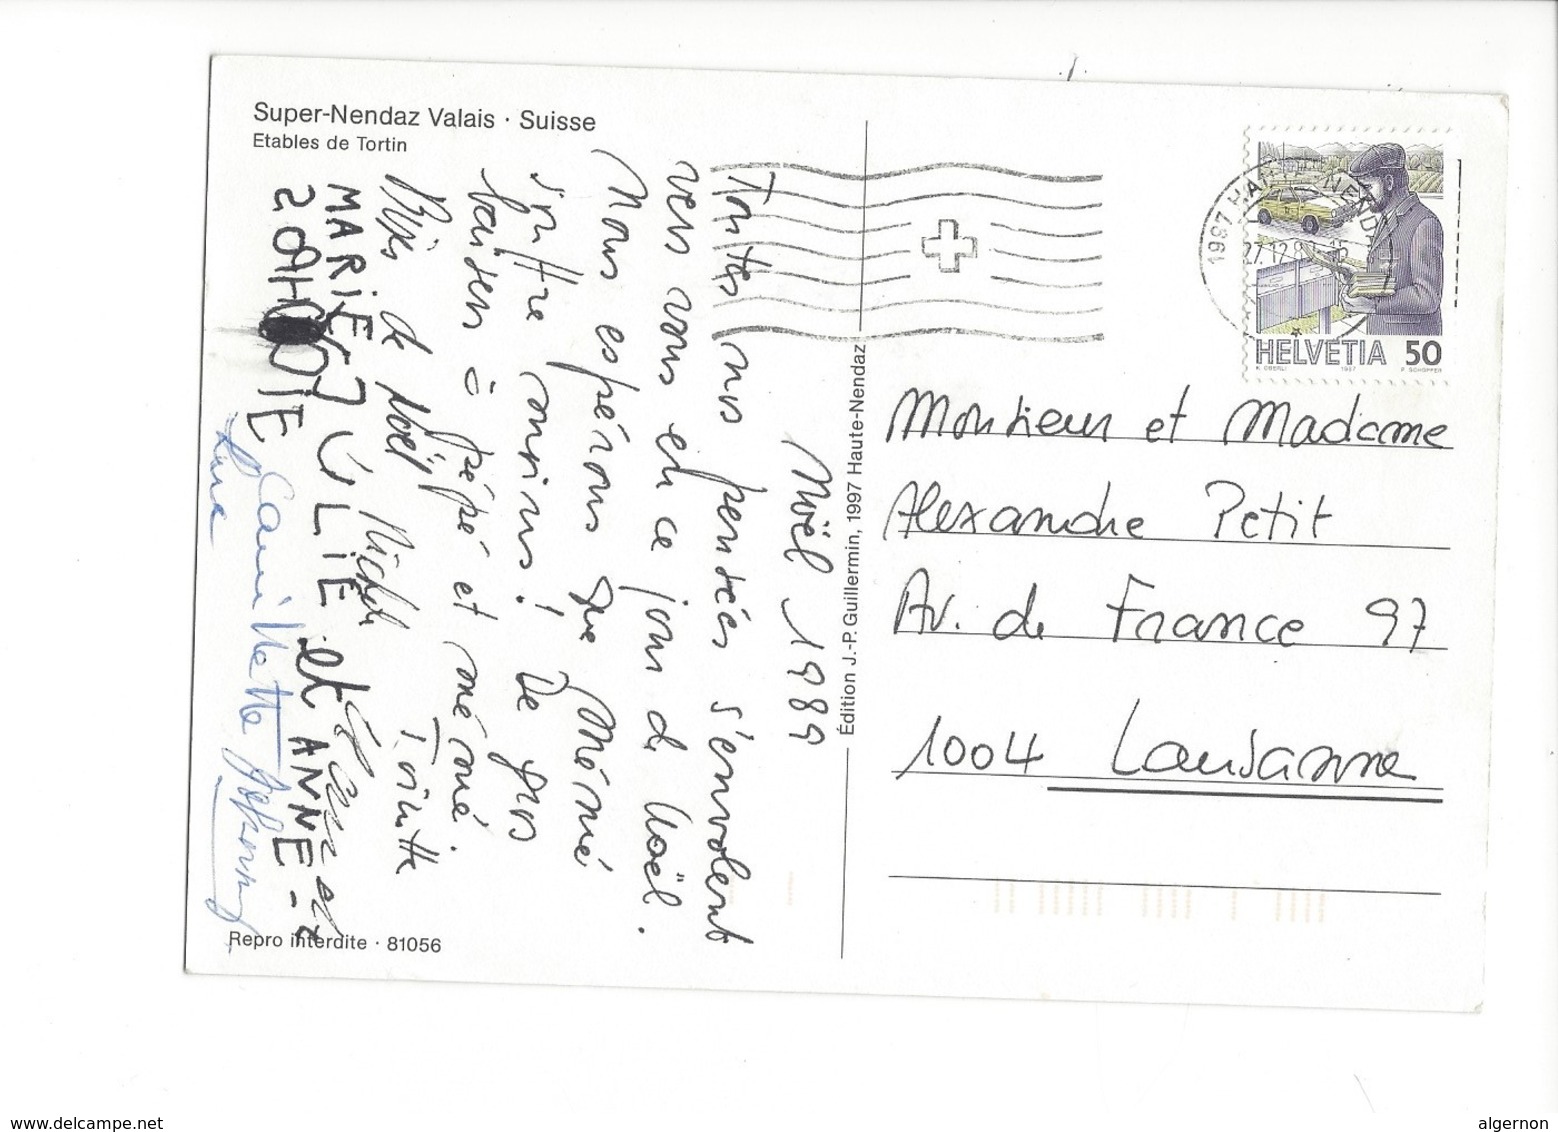 Super-Nendaz Valais · Suisse
Etables de Tortin
Noël 1989
Toutes nos pensées s'envolent
vers vous en ce jour de Noël.
Nous espérons que Mémé
souffre moins! De gros
baisers à pépé et mémé.
Toinette
Michel
MARIE JULIE et ANNE-
Édition J.-P. Guillermin, 1997 Haute-Nendaz
1997 HAUTE-NENDAZ
27.12.8
HELVETIA 50
K. OBERLI 1987 P. SCHOPFER
Monsieur et Madame
Alexandre Petit
Av. de France 97
1004 Lausanne
Repro interdite · 81056
www.delcampe.net
algernon